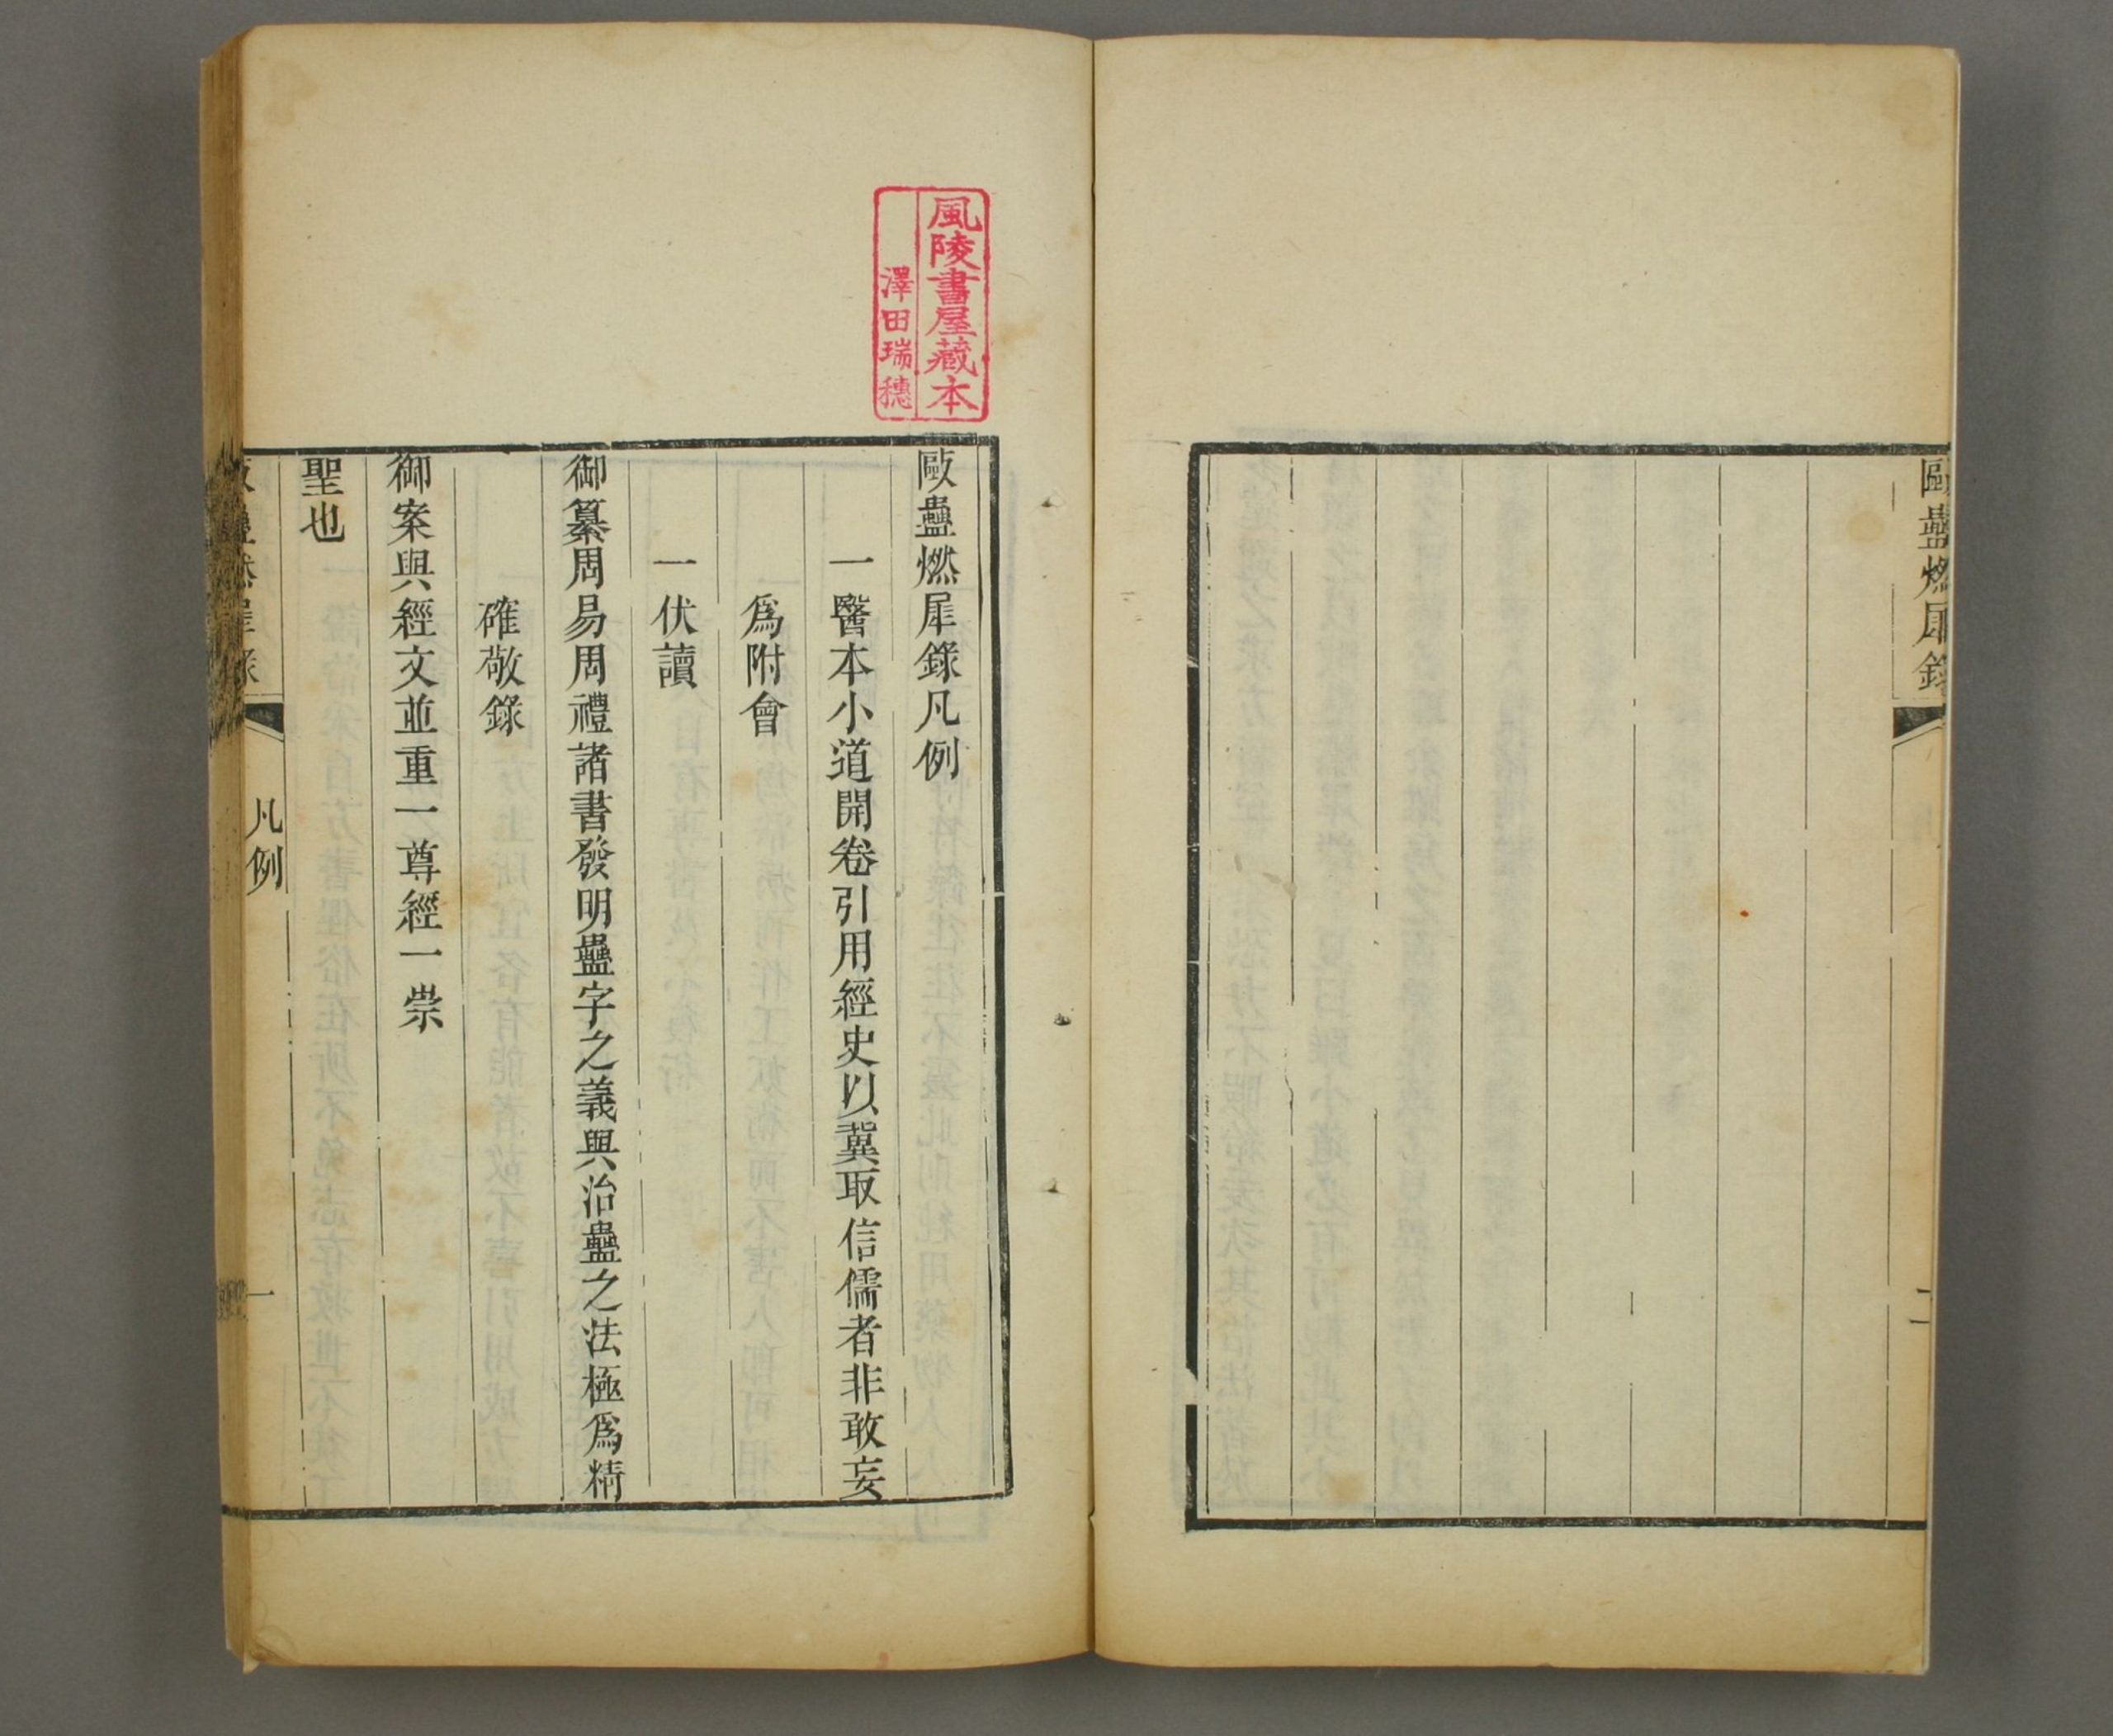 歐蠱燃犀錄
二
風陵書屋藏本
澤田瑞穗
歐蠱燃犀錄凡例
一醫本小道開卷引用經史以冀取信儒者非敢妄
為附會
一伏讀
御纂周易周禮諸書發明蠱字之義與治蠱之法極為精
確敬錄
御案與經文並重一尊經一崇
聖也
凡例
一